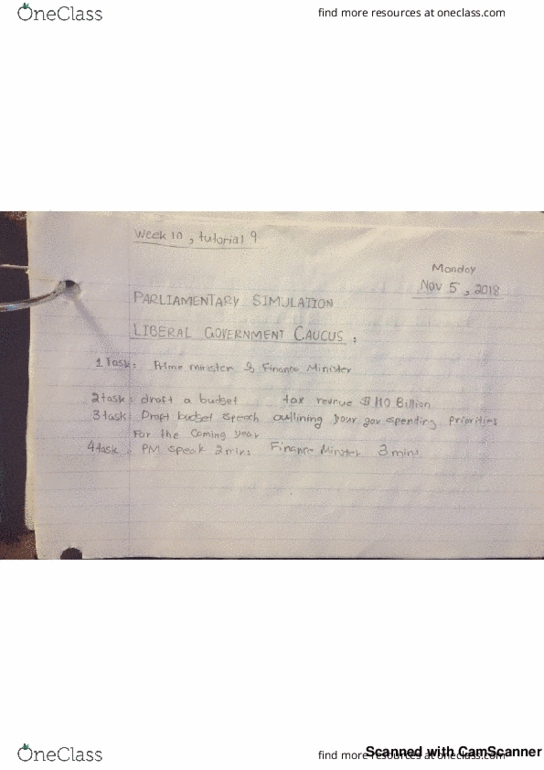 OneClass
find more resources at oneclass.com
Week 10, tutorial 9
Monday
Nov 5, 2018
PARLIAMENTARY SIMULATION
LIBERAL GOVERNMENT CAUCUS :
1 Task: Prime minister & Finance Minister
2 task: draft a budget tax revnue $ 110 Billion
3 task: Draft budget speach outlining your gov spending priorities
For the coming year
4 task: PM speak 2 mins Finance Minster 3 mins
OneClass
find more resources at oneclass.com
Scanned with CamScanner